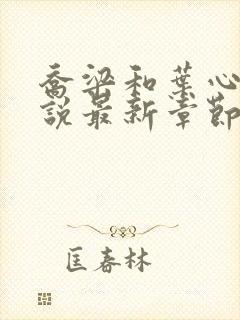 喬梁和葉心
說最新章節
匡春林